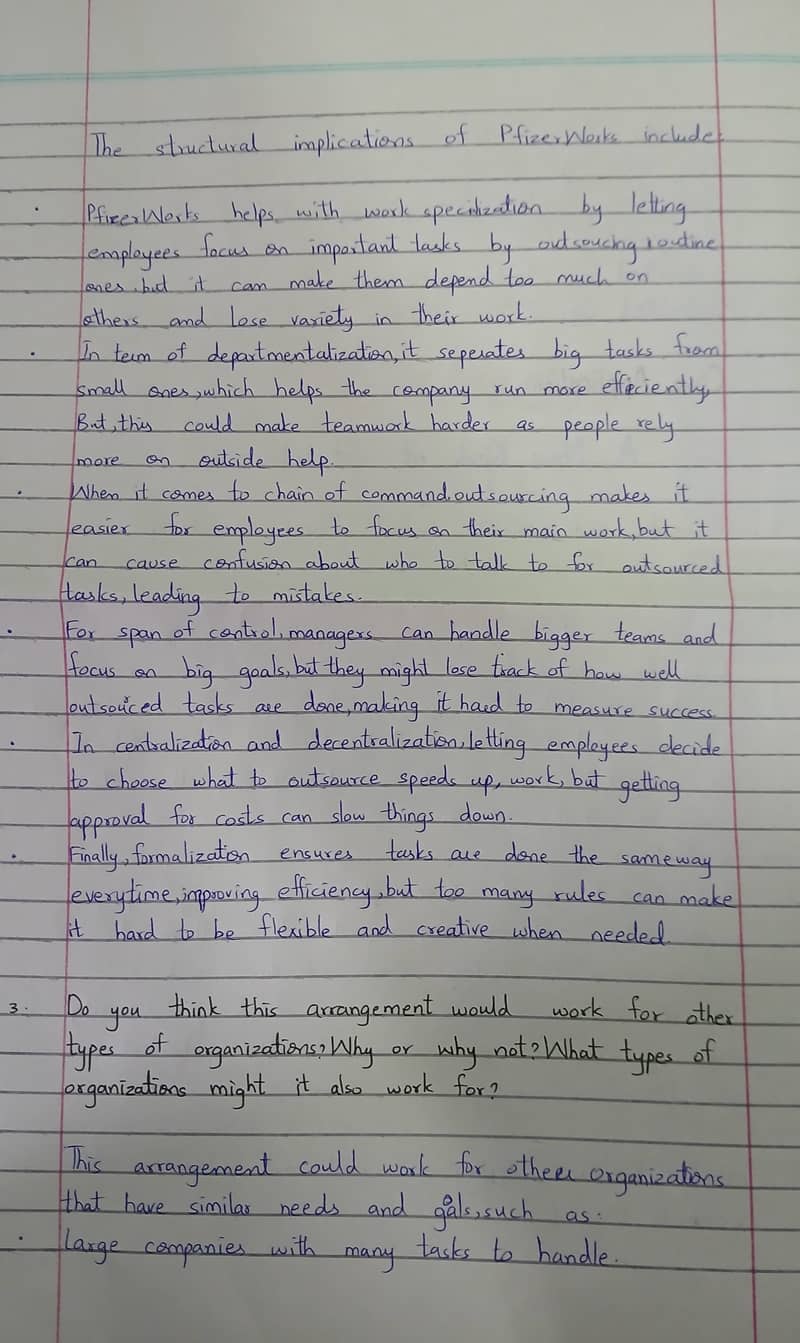 The structural implications of PfizerWorks include:
• PfizerWorks helps with work specilization by letting
employees focus on important tasks by outsoucing routine
ones, but it can make them depend too much on
others and lose variety in their work.
• In term of departmentalization, it seperates big tasks from
small ones, which helps the company run more efficiently,
But, this could make teamwork harder as people rely
more on outside help.
• When it comes to chain of command, outsourcing makes it
easier for employees to focus on their main work, but it
can cause confusion about who to talk to for outsourced
tasks, leading to mistakes.
• For span of control, managers can handle bigger teams and
focus on big goals, but they might lose track of how well
outsourced tasks are done, making it hard to measure success.
• In centralization and decentralization, letting employees decide
to choose what to outsource speeds up, work, but getting
approval for costs can slow things down.
• Finally, formalization ensures tasks are done the sameway
everytime, improving efficiency, but too many rules can make
it hard to be flexible and creative when needed.
3. Do you think this arrangement would work for other
types of organizations? Why or why not? What types of
organizations might it also work for?
This arrangement could work for other organizations
that have similar needs and goals, such as:
• Large companies with many tasks to handle.